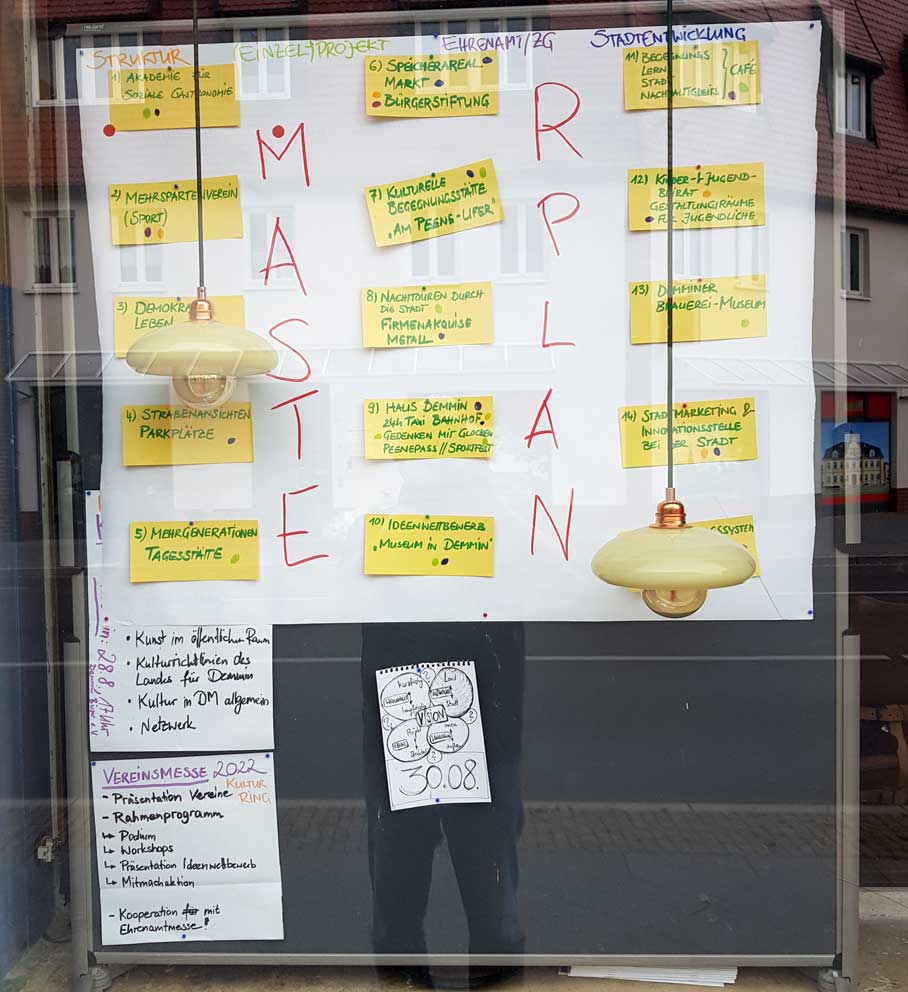 STRUKTUR
(EINZEL-)PROJEKT
EHRENAMT/ZG
STADTENTWICKLUNG
MASTERPLAN
1) AKADEMIE FÜR
SOZIALE GASTRONOMIE
2) MEHRSPARTENVEREIN
(SPORT)
3) DEMOKRA
LEBEN
4) STRAßENANSICHTEN
PARKPLÄTZE
5) MEHRGENERATIONEN
TAGESSTÄTTE
6) SPEICHERAREAL
MARKT
BÜRGERSTIFTUNG
7) KULTURELLE
BEGEGNUNGSSTÄTTE
"AM PEENE-UFER"
8) NACHTTOUREN DURCH
DIE STADT
FIRMENAKQUISE
METALL
9) HAUS DEMMIN
24h TAXI BAHNHOF
GEDENKEN MIT GLOCKEN
PEENEPASS // SPORTFEST
10) IDEENWETTBEWERB
"MUSEUM IN DEMMIN"
11) BEGEGNUNGS
LERN
STADT
NACHHALTIGKEITS
CAFÉ
12) KINDER- & JUGEND-
BEIRAT
GESTALTUNGSRÄUME
FÜR JUGENDLICHE
13) DEMMINER
BRAUEREI-MUSEUM
14) STADTMARKETING &
INNOVATIONSSTELLE
BEI DER STADT
GSSYSTEM
28.8 / 17 Uhr
• Kunst im öffentlichen Raum
• Kulturrichtlinien des
Landes für Demmin
• Kultur in DM allgemein
• Netzwerk
VEREINSMESSE 2022
KULTUR
RING
- Präsentation Vereine
- Rahmenprogramm
↳ Podium
↳ Workshops
↳ Präsentation Ideenwettbewerb
↳ Mitmachaktion
- Kooperation für mit
Ehrenamtmesse!
kurzfristig
Land
langfristig
Stadt
VISION
30.08.